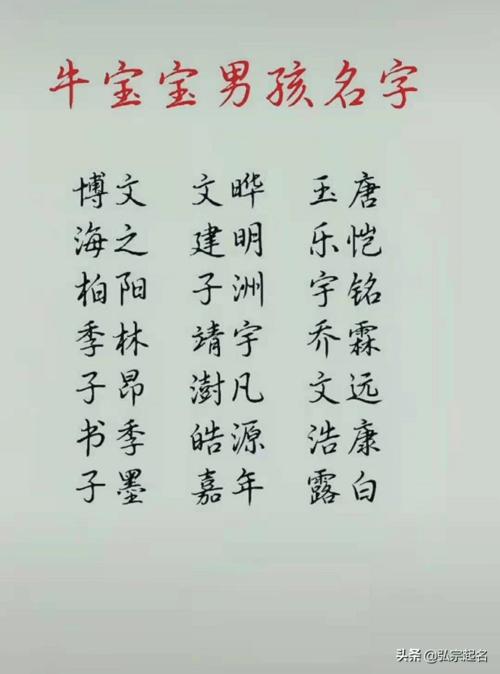 牛宝宝男孩名字
博文 文晔 玉唐
海之 建明 乐恺
柏阳 子洲 宇铭
季林 靖宇 乔霖
子昂 澍凡 文远
书季 皓源 浩康
子墨 嘉年 露白
头条 @弘宗起名